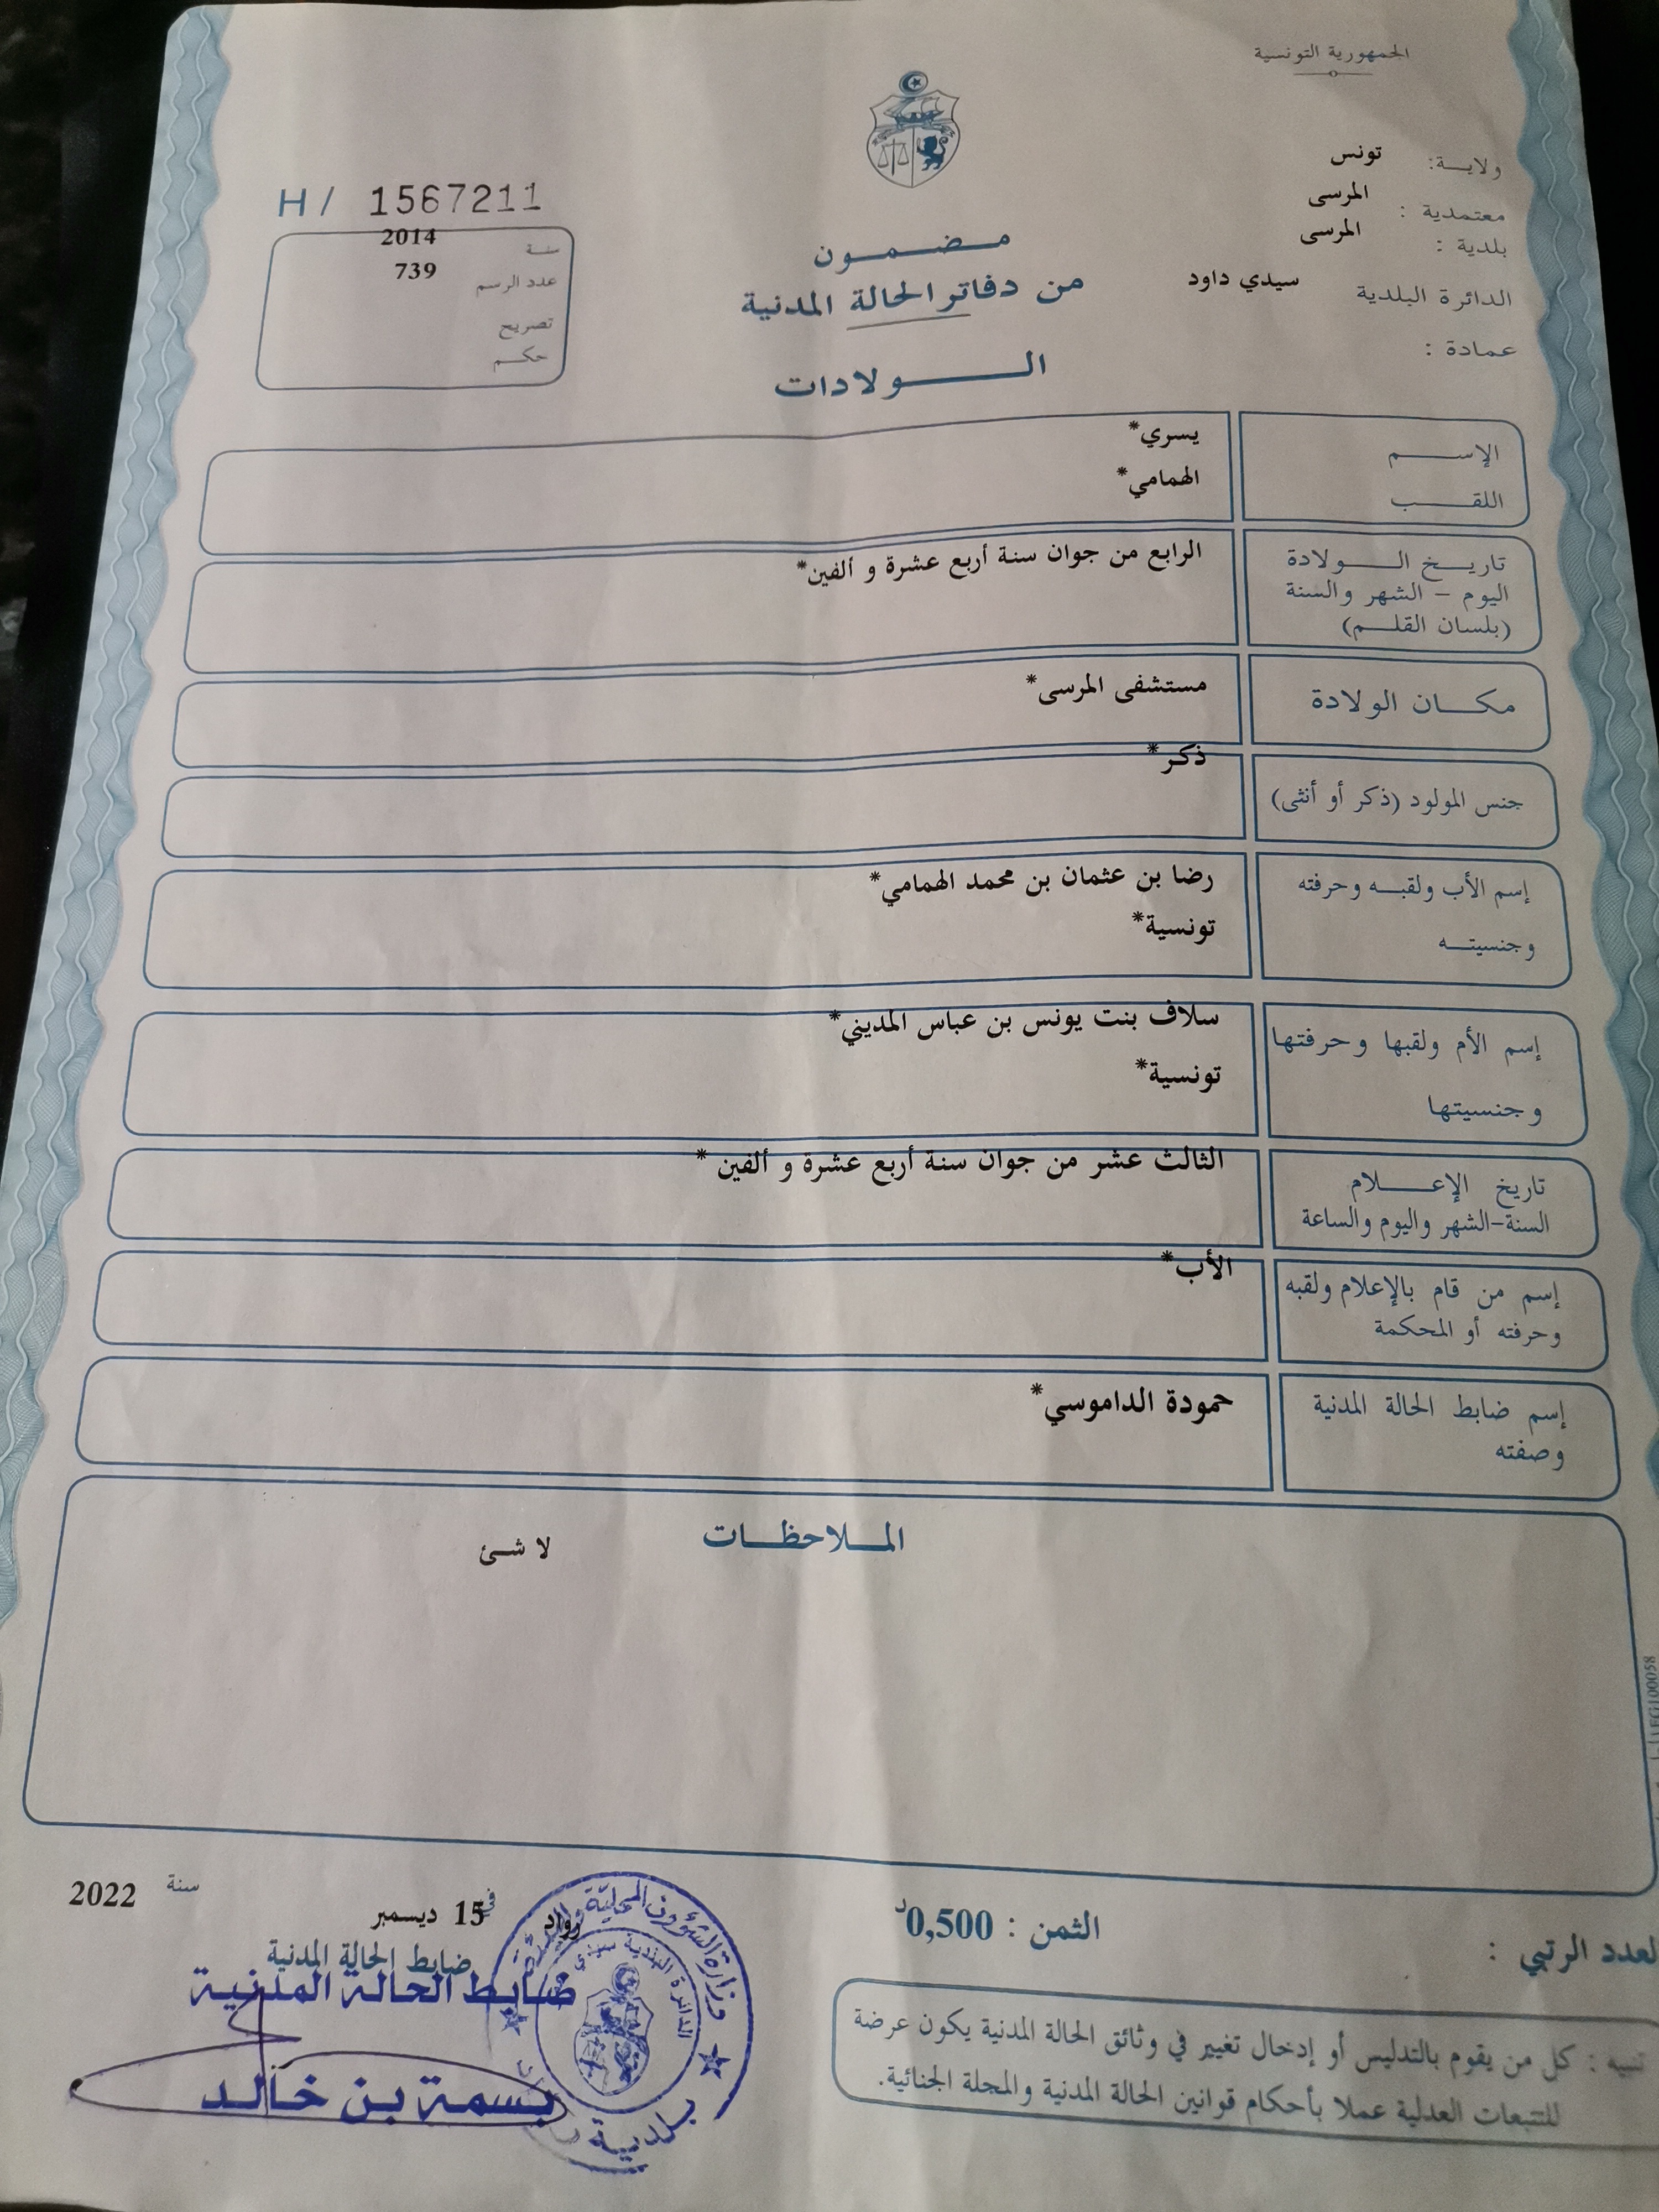 الجمهورية التونسية
ولاية: تونس
معتمدية : المرسى
بلدية : المرسى
الدائرة البلدية سيدي داود
عمادة :
H/ 1567211
سنة 2014
عدد الرسم 739
تصريح
حكم
مضمون
من دفاتر الحالة المدنية
الولادات
الإسم يسري*
اللقب الهمامي*
تاريخ الولادة الرابع من جوان سنة أربع عشرة و ألفين*
اليوم - الشهر والسنة
(بلسان القلم)
مكان الولادة مستشفى المرسى*
جنس المولود (ذكر أو أنثى) ذكر*
إسم الأب ولقبه وحرفته رضا بن عثمان بن محمد الهمامي*
وجنسيته تونسية*
إسم الأم ولقبها وحرفتها سلاف بنت يونس بن عباس المديني*
وجنسيتها تونسية*
تاريخ الإعلام الثالث عشر من جوان سنة أربع عشرة و ألفين *
السنة-الشهر واليوم والساعة
إسم من قام بالإعلام ولقبه الأب*
وحرفته أو المحكمة
إسم ضابط الحالة المدنية حمودة الداموسي*
وصفته
الملاحظات
لا شئ
العدد الرتبي :
الثمن : 0,500د
رواد في 15 ديسمبر سنة 2022
ضابط الحالة المدنية
ضابط الحالة المدنية
بسمة بن خالد
وزارة الشؤون المحلية
الدائرة البلدية سيدي
بلدية
تنبيه : كل من يقوم بالتدليس أو إدخال تغيير في وثائق الحالة المدنية يكون عرضة
للتتبعات العدلية عملا بأحكام قوانين الحالة المدنية والمجلة الجنائية.